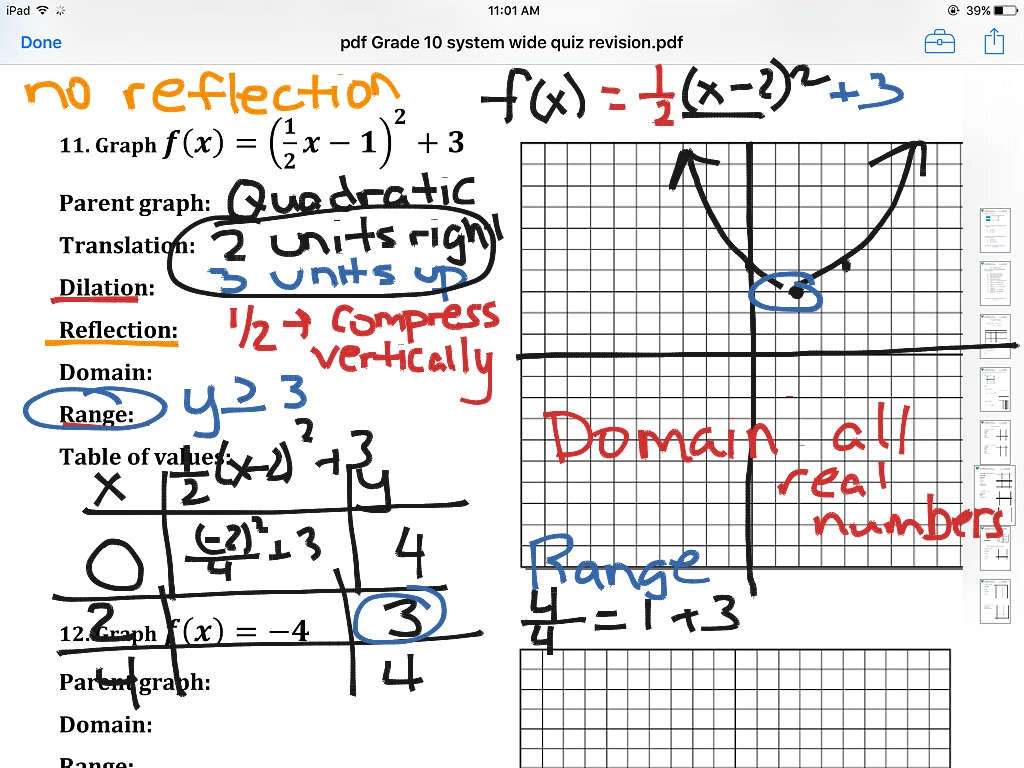 iPad 11:01 AM 39%
Done pdf Grade 10 system wide quiz revision.pdf
no reflection
f(x) = 1/2 (x-2)² + 3
11. Graph f(x) = (1/2 x − 1)² + 3
Parent graph: Quadratic
Translation: 2 units right
3 units up
Dilation: 1/2 → compress
vertically
Reflection:
Domain:
Range: y ≥ 3
Table of values:
x 1/2 (x-2)² + 3 y
0 (-2)²/4 + 3 4
2 3
4 4
Domain - all
real
numbers
Range
4/4 = 1 + 3
12. Graph f(x) = −4
Parent graph:
Domain:
Range: